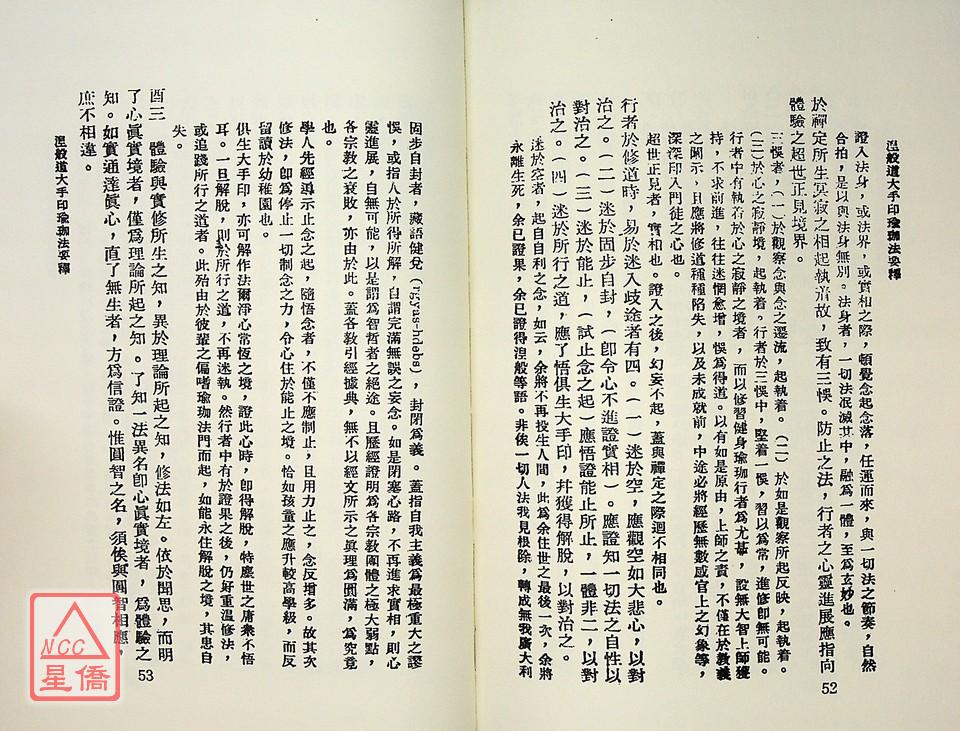 涅槃道大手印瑜珈法要釋
證入法身，或法界，或實相之際，頓覺念起念落，任運而來，與一切法之節奏，自然
合拍，是以與法身無別。法身者，一切法泯滅其中，融為一體，至為玄妙也。
於禪定所生冥寂之相起執著故，致有三悞。防止之法，行者之心靈進展應指向
體驗之超世正見境界。
三悞者，（一）於觀察念與念之遷流，起執着。（二）於如是觀察所起反映，起執着。
（三）於心之寂靜境，起執着。行者於三悞中，堅着一悞，習以為常，進修卽無可能。
行者中有執着於心之寂靜之境者，而以修習健身瑜珈行者為尤甚，設無大智上師護
持，不求前進，往往迷惘愈增，悞為得道。以有如是原由，上師之責，不僅在於教義
之闡示，且應將修道種種陷失，以及未成就前，中途必將經歷無數感官上之幻象等，
深深印入門徒之心也。
超世正見者，實相也。證入之後，幻妄不起，蓋與禪定之際迴不相同也。
行者於修道時，易於迷入歧途者有四。（一）迷於空，應觀空如大悲心，以對
治之。（二）迷於固步自封，（卽令心不進證實相）。應證知一切法之自性以
對治之。（三）迷於能止，（試止念之起）應悟證能止所止，一體非二，以對
治之。（四）迷於所行之道，應了悟俱生大手印，幷獲得解脫，以對治之。
迷於空者，起自自利之念，如云，余將不再投生人間，此為余住世之最後一次，余將
永離生死，余已證果，余已證得湼般等語。非俟一切人法我見根除，轉成無我廣大利
52
固步自封者，藏語健兌（rgyas-hdebs），封閉為義。蓋指自我主義為最極重大之謬
悞，或指人於所得所解，自謂完滿無誤之妄念。如是閉塞心路，不再進求實相，則心
靈進展，自無可能，以是謂為智哲者之絕途。且歷經證明為各宗教團體之極大弱點，
各宗教之衰敗，亦由於此。蓋各敎引經據典，無不以經文所示之眞理為圓滿，為究竟
也。
學人先經導示止念之起，隨悟念者，不僅不應制止，且用力止之，念反增多。故其次
修法，卽為停止一切制念之力，令心住於能止之境。恰如孩童之應升較高學級，而反
留讀於幼稚園也。
俱生大手印，亦可解作法爾淨心常恆之境，證此心時，卽得解脫，特塵世之庸衆不悟
耳。一旦解脫，則於所行之道，不再迷執。然行者中有於證果之後，仍好重溫修法，
或追踐所行之道者。此殆由於彼輩之偏嗜瑜珈法門而起，如能永住解脫之境，其患自
失。
酉三　體驗與實修所生之知，異於理論所起之知，修法如左。依於聞思，而明
了心眞實境者，僅為理論所起之知。了知一法異名卽心眞實境者，為體驗之
知。如實通達眞心，直了無生者，方為信證。惟圓智之名，須俟與圓智相應，
庶不相違。
涅般道大手印瑜珈法要釋
53
NCC
星僑